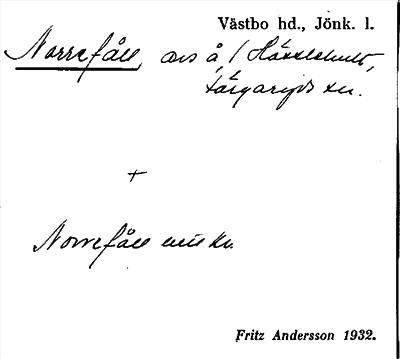 Västbo hd., Jönk. l.
Norrefåll, avs å / Hässlehult,
Färgaryds sn.
+
Norrefåll
Fritz Andersson 1932.